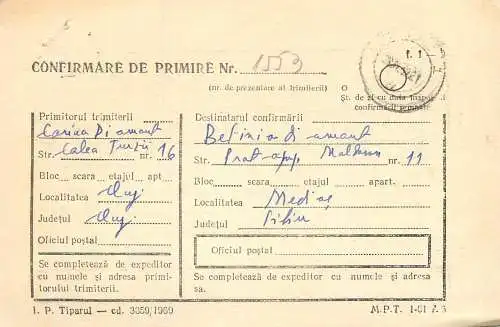 CONFIRMARE DE PRIMIRE Nr. 1553
(nr. de prezentare al trimiterii)
f. 1 —
O
Șt. de zi cu data
confirmării
Primitorul trimiterii
Carina Diamant
Str. Calea Turzii nr. 16
Bloc scara etajul apt
Localitatea Cluj
Județul Cluj
Oficiul poștal
Se completează de expeditor
cu numele și adresa primi-
torului trimiterii.
Destinatarul confirmării
Diamant
Str. nr. 11
Bloc scara etajul apart.
Localitatea Mediaș
Județul Sibiu
Oficiul poștal
Se completează de expeditor cu numele și adresa
sa.
I. P. Tiparul — cd. 3359/1969
M.P.T. 1-01